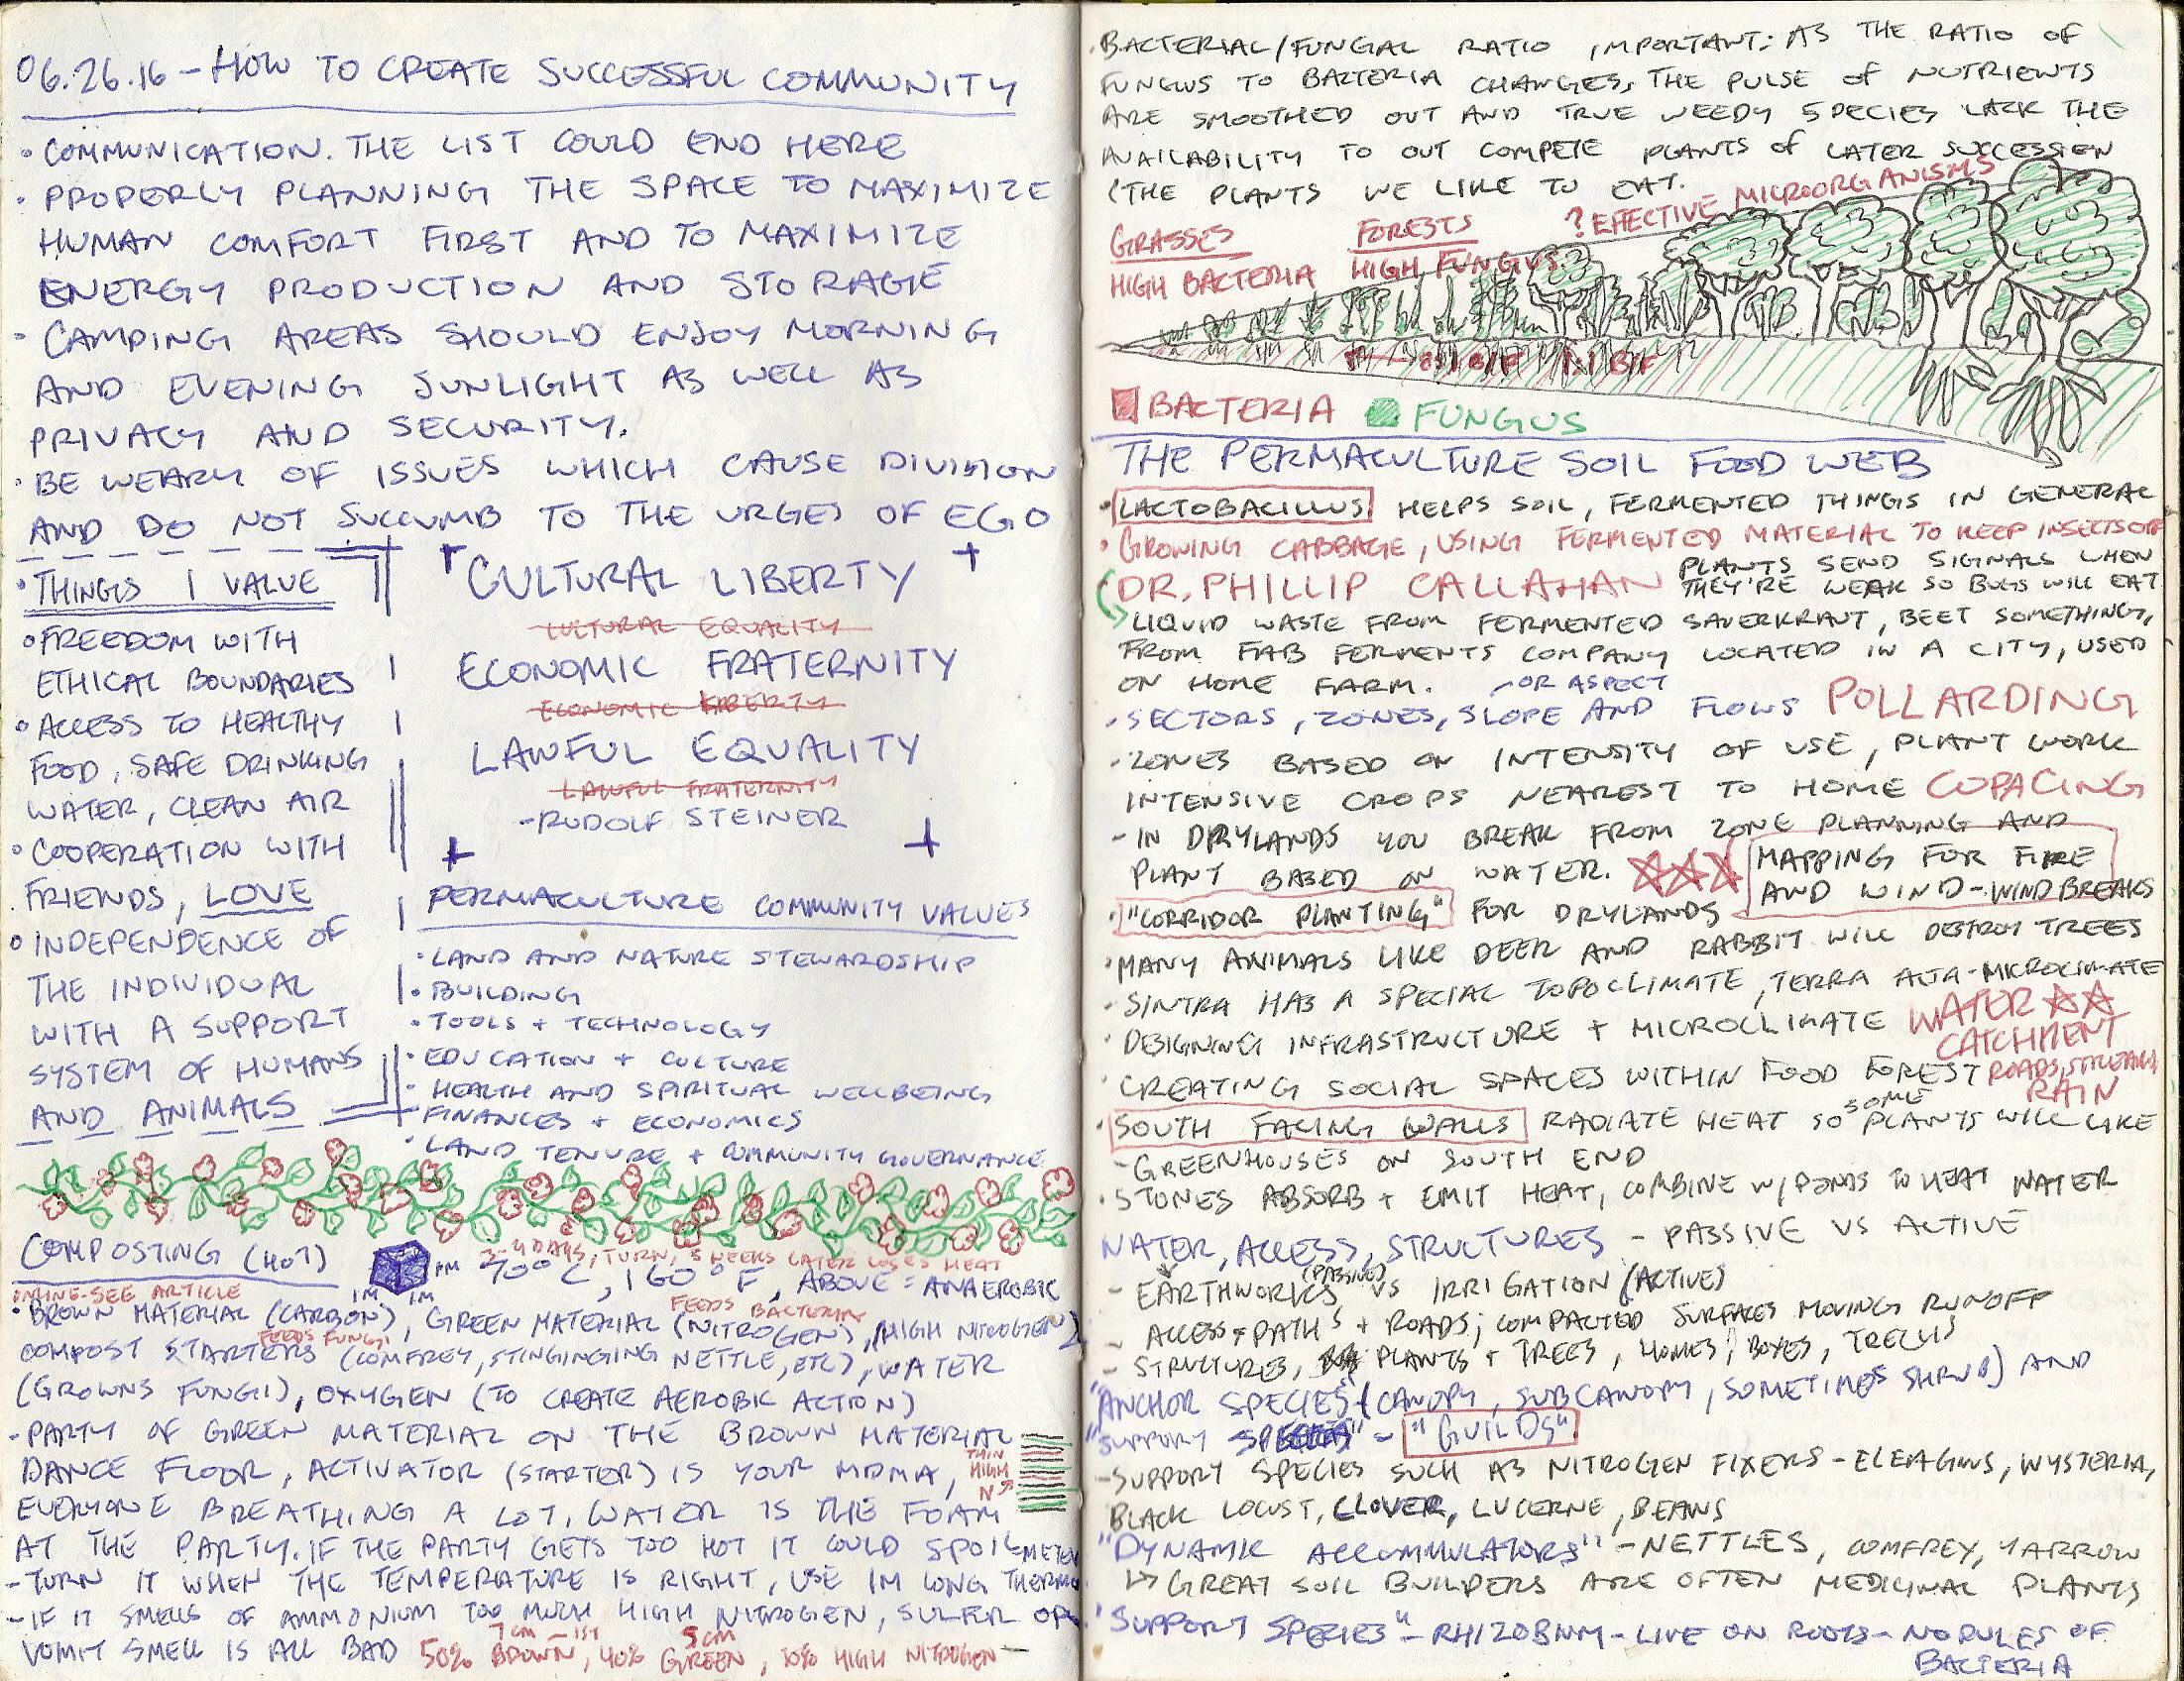 06.26.16 - HOW TO CREATE SUCCESSFUL COMMUNITY
• COMMUNICATION. THE LIST COULD END HERE
• PROPERLY PLANNING THE SPACE TO MAXIMIZE
HUMAN COMFORT FIRST AND TO MAXIMIZE
ENERGY PRODUCTION AND STORAGE
• CAMPING AREAS SHOULD ENJOY MORNING
AND EVENING SUNLIGHT AS WELL AS
PRIVACY AND SECURITY.
• BE WEARY OF ISSUES WHICH CAUSE DIVISION
AND DO NOT SUCCUMB TO THE URGES OF EGO
• THINGS I VALUE
• FREEDOM WITH
ETHICAL BOUNDARIES
• ACCESS TO HEALTHY
FOOD, SAFE DRINKING
WATER, CLEAN AIR
• COOPERATION WITH
FRIENDS, LOVE
• INDEPENDENCE OF
THE INDIVIDUAL
WITH A SUPPORT
SYSTEM OF HUMANS
AND ANIMALS
CULTURAL LIBERTY
CULTURAL EQUALITY
ECONOMIC FRATERNITY
ECONOMIC LIBERTY
LAWFUL EQUALITY
LAWFUL FRATERNITY
- RUDOLF STEINER
PERMACULTURE COMMUNITY VALUES
• LAND AND NATURE STEWARDSHIP
• BUILDING
• TOOLS + TECHNOLOGY
• EDUCATION + CULTURE
• HEALTH AND SPIRITUAL WELLBEING
• FINANCES + ECONOMICS
• LAND TENURE + COMMUNITY GOVERNANCE
COMPOSTING (HOT)
1M 1M
3-4 DAYS, TURN, 3 WEEKS LATER LOSES HEAT
70° C, 160° F, ABOVE = ANAEROBIC
INLINE-SEE ARTICLE
FEEDS BACTERIA
• BROWN MATERIAL (CARBON), GREEN MATERIAL (NITROGEN), (HIGH NITROGEN)
FEEDS FUNGI
COMPOST STARTERS (COMFREY, STINGINGING NETTLE, ETC), WATER
(GROWNS FUNGI), OXYGEN (TO CREATE AEROBIC ACTION)
- PARTY OF GREEN MATERIAL ON THE BROWN MATERIAL
DANCE FLOOR, ACTIVATOR (STARTER) IS YOUR MDMA,
THIN
HIGH
N
EVERYONE BREATHING A LOT, WATER IS THE FOAM
AT THE PARTY. IF THE PARTY GETS TOO HOT IT COULD SPOIL
- TURN IT WHEN THE TEMPERATURE IS RIGHT, USE 1M LONG THERMO
METER
- IF IT SMELLS OF AMMONIUM TOO MUCH HIGH NITROGEN, SULFUR OR
VOMIT SMELL IS ALL BAD
7cm 5cm
50% BROWN, 40% GREEN, 10% HIGH NITROGEN
• BACTERIAL/FUNGAL RATIO IMPORTANT: AS THE RATIO OF
FUNGUS TO BACTERIA CHANGES, THE PULSE OF NUTRIENTS
ARE SMOOTHED OUT AND TRUE WEEDY SPECIES LACK THE
AVAILABILITY TO OUT COMPETE PLANTS OF LATER SUCCESSION
(THE PLANTS WE LIKE TO EAT.
? EFFECTIVE MICROORGANISMS
GRASSES
HIGH BACTERIA
FORESTS
HIGH FUNGUS
BACTERIA FUNGUS
THE PERMACULTURE SOIL FOOD WEB
• LACTOBACILLUS HELPS SOIL, FERMENTED THINGS IN GENERAL
• GROWING CABBAGE, USING FERMENTED MATERIAL TO KEEP INSECTS OFF
DR. PHILLIP CALLAHAN
PLANTS SEND SIGNALS WHEN
THEY'RE WEAK SO BUGS WILL EAT
LIQUID WASTE FROM FERMENTED SAUERKRAUT, BEET SOMETHING,
FROM FAB FERMENTS COMPANY LOCATED IN A CITY, USED
ON HOME FARM.
OR ASPECT
• SECTORS, ZONES, SLOPE AND FLOWS POLLARDING
• ZONES BASED ON INTENSITY OF USE, PLANT WORK
INTENSIVE CROPS NEAREST TO HOME COPACING
- IN DRYLANDS YOU BREAK FROM ZONE PLANNING AND
PLANT BASED ON WATER.
MAPPING FOR FIRE
AND WIND - WINDBREAKS
• "CORRIDOR PLANTING" FOR DRYLANDS
• MANY ANIMALS LIKE DEER AND RABBIT WILL DESTROY TREES
• SINTRA HAS A SPECIAL TOPOCLIMATE, TERRA ALTA - MICROCLIMATE
• DESIGNING INFRASTRUCTURE + MICROCLIMATE
WATER
CATCHMENT
ROADS, STREAMS,
RAIN
• CREATING SOCIAL SPACES WITHIN FOOD FOREST
• SOUTH FACING WALLS RADIATE HEAT SO SOME PLANTS WILL LIKE
- GREENHOUSES ON SOUTH END
• STONES ABSORB + EMIT HEAT, COMBINE W/ PONDS TO HEAT WATER
WATER, ACCESS, STRUCTURES - PASSIVE VS ACTIVE
- EARTHWORKS (PASSIVE) VS IRRIGATION (ACTIVE)
- ACCESS + PATHS + ROADS; COMPACTED SURFACES MOVING RUNOFF
- STRUCTURES, PLANTS + TREES, HOMES, BOXES, TRELLIS
"ANCHOR SPECIES" (CANOPY, SUBCANOPY, SOMETIMES SHRUB) AND
"SUPPORT SPECIES" - "GUILDS"
- SUPPORT SPECIES SUCH AS NITROGEN FIXERS - ELEAGNUS, WYSTERIA,
BLACK LOCUST, CLOVER, LUCERNE, BEANS
"DYNAMIC ACCUMMULATORS" - NETTLES, COMFREY, YARROW
↳ GREAT SOIL BUILDERS ARE OFTEN MEDICINAL PLANTS
"SUPPORT SPECIES" - RHIZOBIUM - LIVE ON ROOTS - NODULES OF
BACTERIA